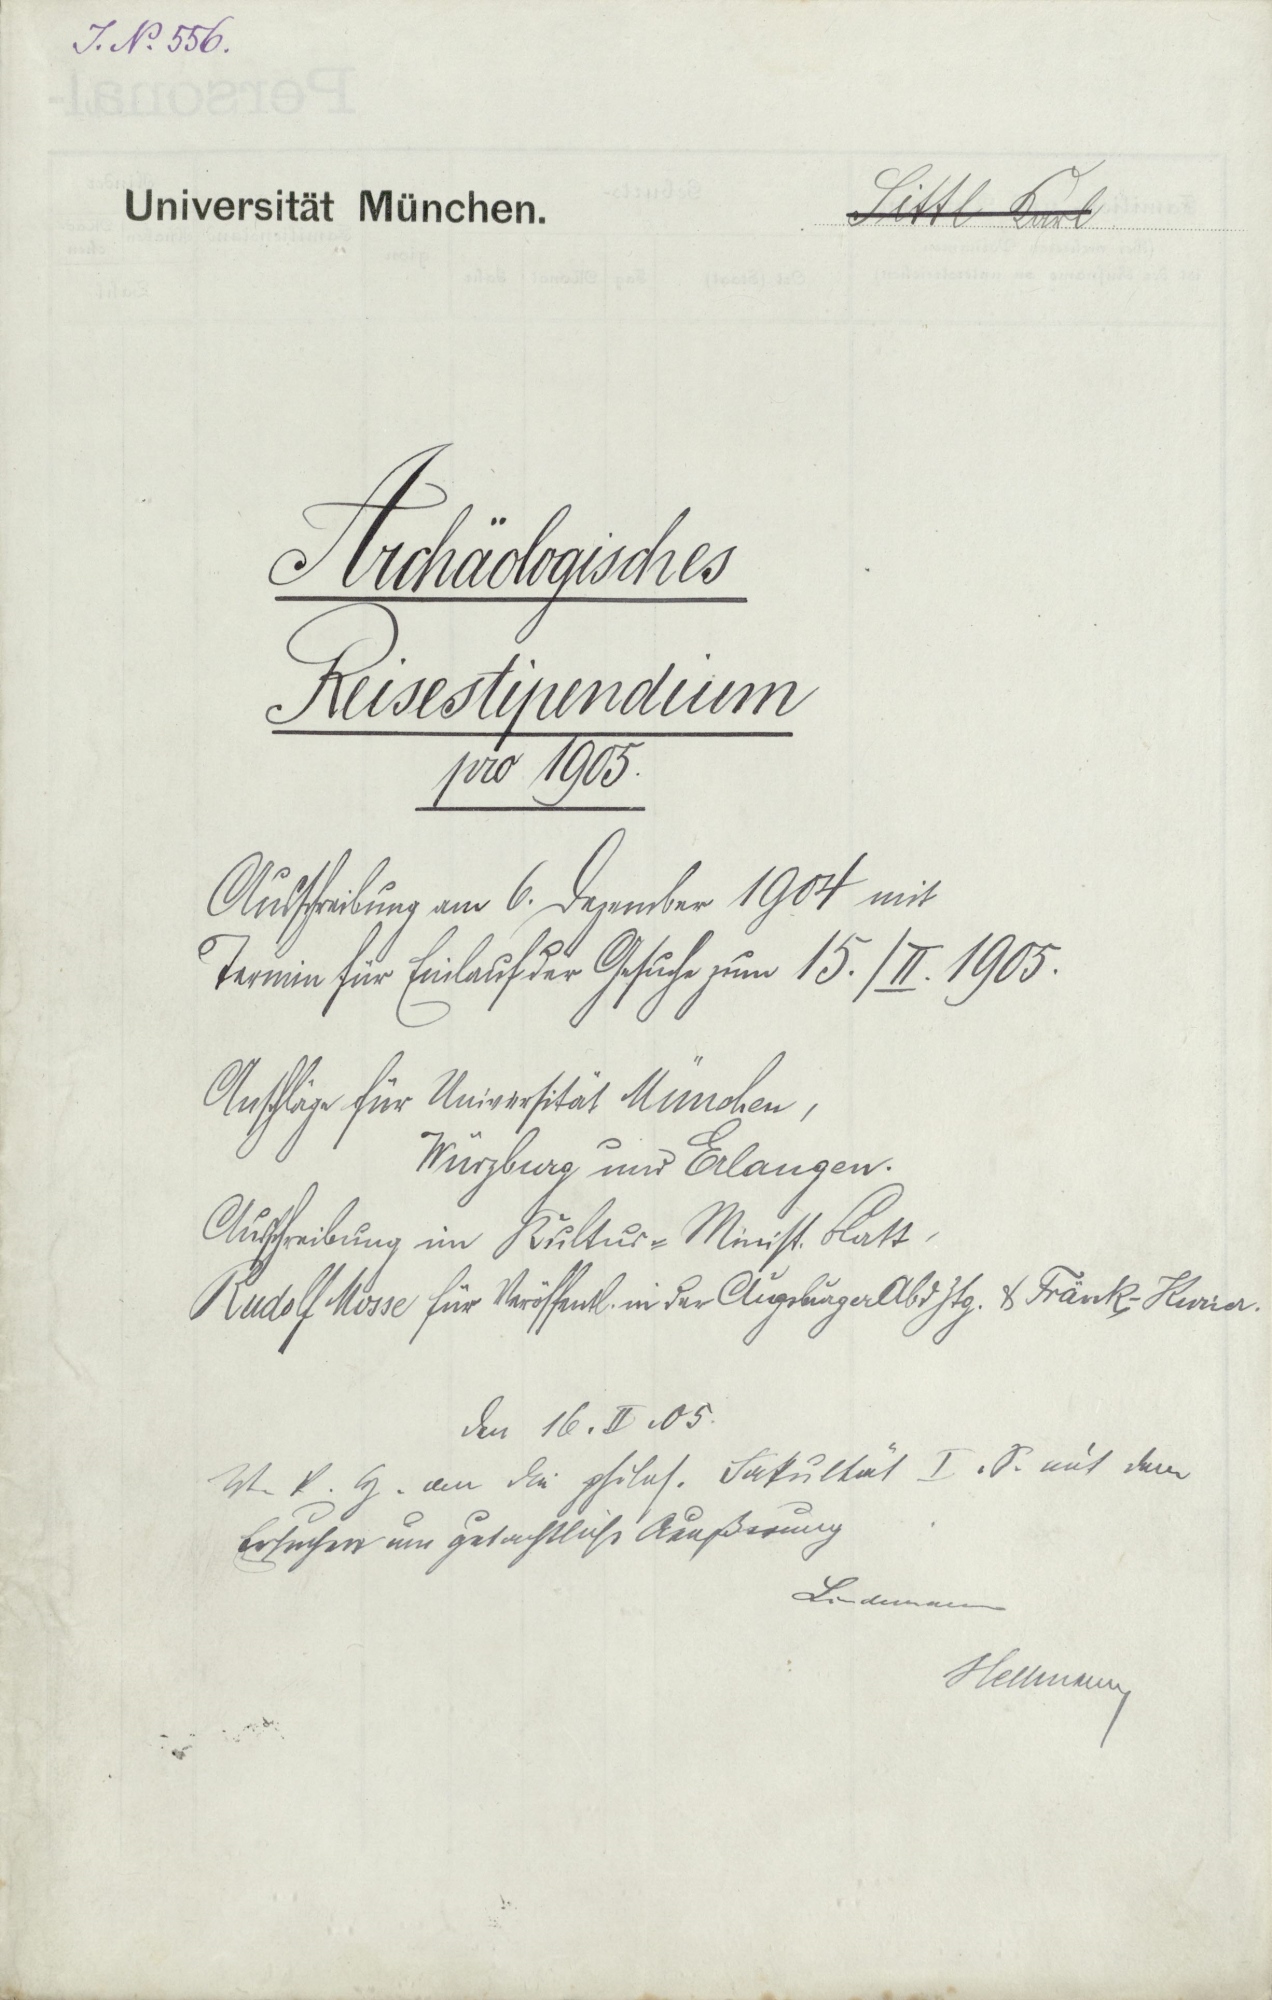 J. No. 556.
Universität München.
Sittl Karl
Archäologisches
Reisestipendium
pro 1905.
Ausschreibung am 6. Dezember 1904 mit
Termin für Einlauf der Gesuche zum 15./II. 1905.
Anschläge für Universität München,
Würzburg und Erlangen.
Ausschreibung im Kultus= Minist. Blatt,
Rudolf Mosse für Veröffentl. in der Augsburger Abdztg. & Fränk. Kurier.
den 16. II. 05.
an die philos. Fakultät I. S. mit dem
Ersuchen um gutachtliche Aeußerung
Lindemann
Hellmann